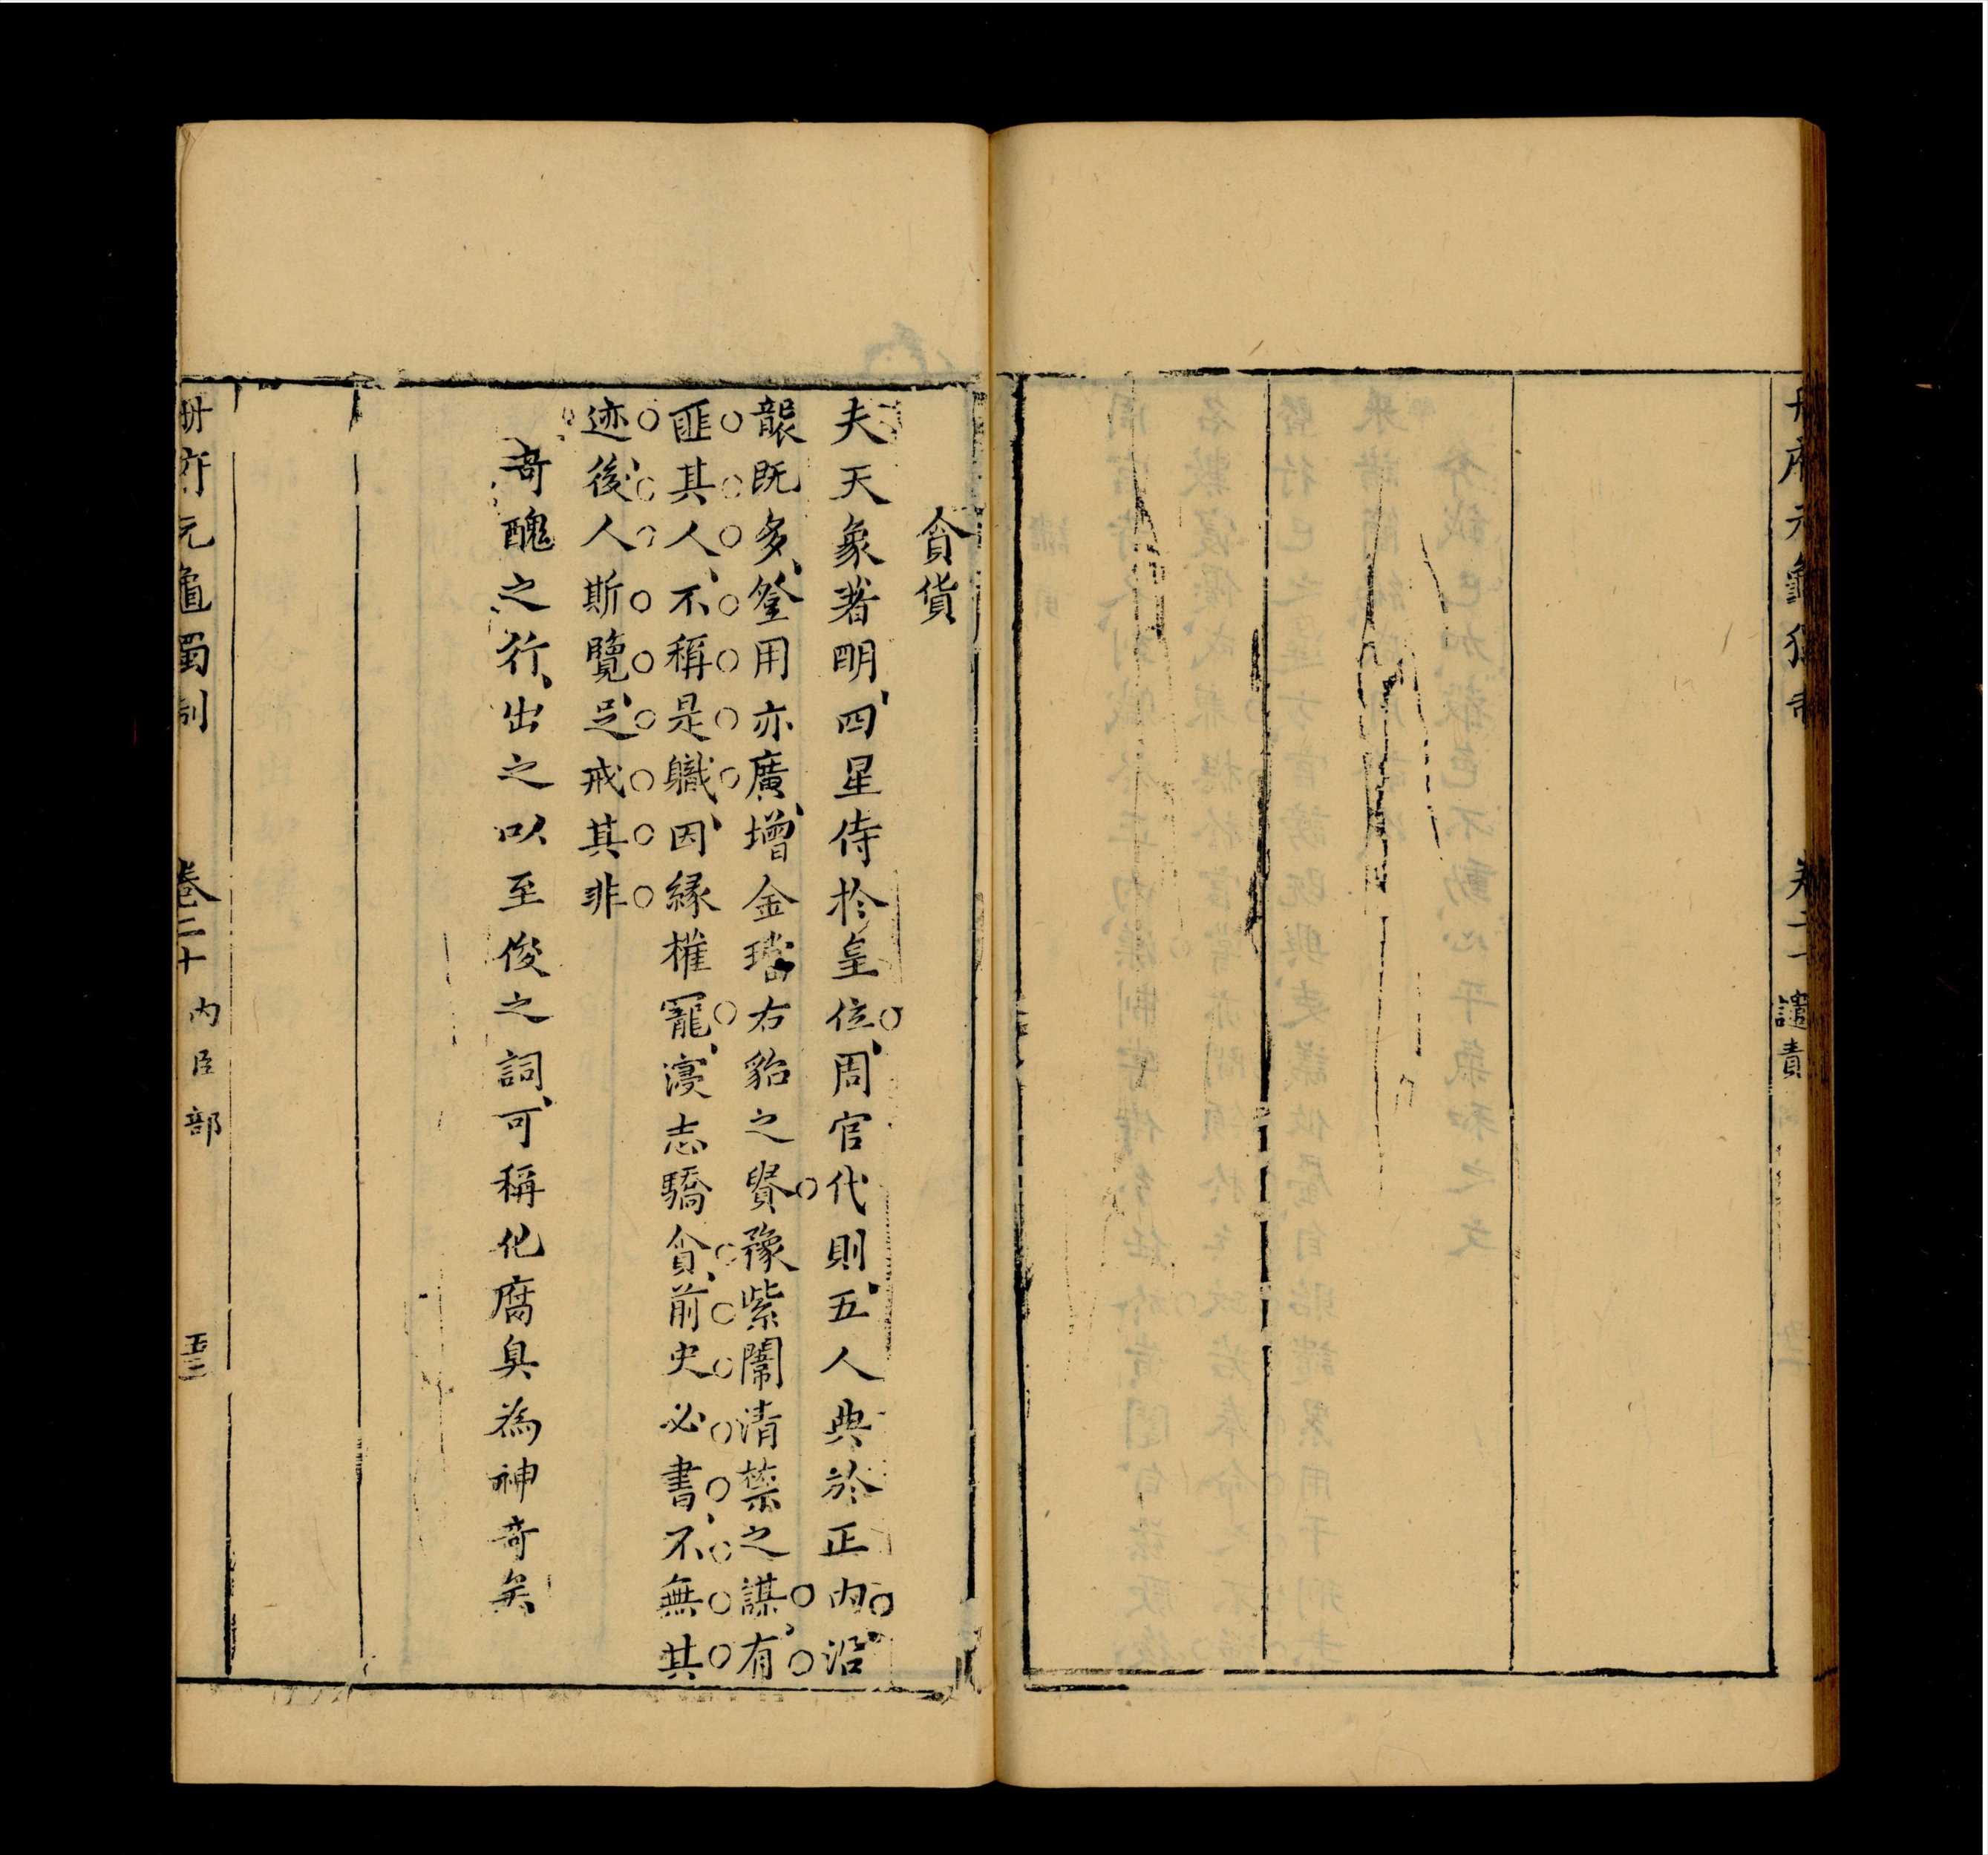 譴責
貪貨
夫天象著明四星侍於皇位周官代則五人典於正內沿
襲既多登用亦廣增金璫右貂之賢豫紫闥清禁之謀有
匪其人不稱是職因緣權寵寖志驕貪前史必書不無其
迹後人斯覽足戒其非
奇醜之行出之以至俊之詞可稱化腐臭為神奇矣
冊府元龜獨制 卷二十 內臣部 五十二